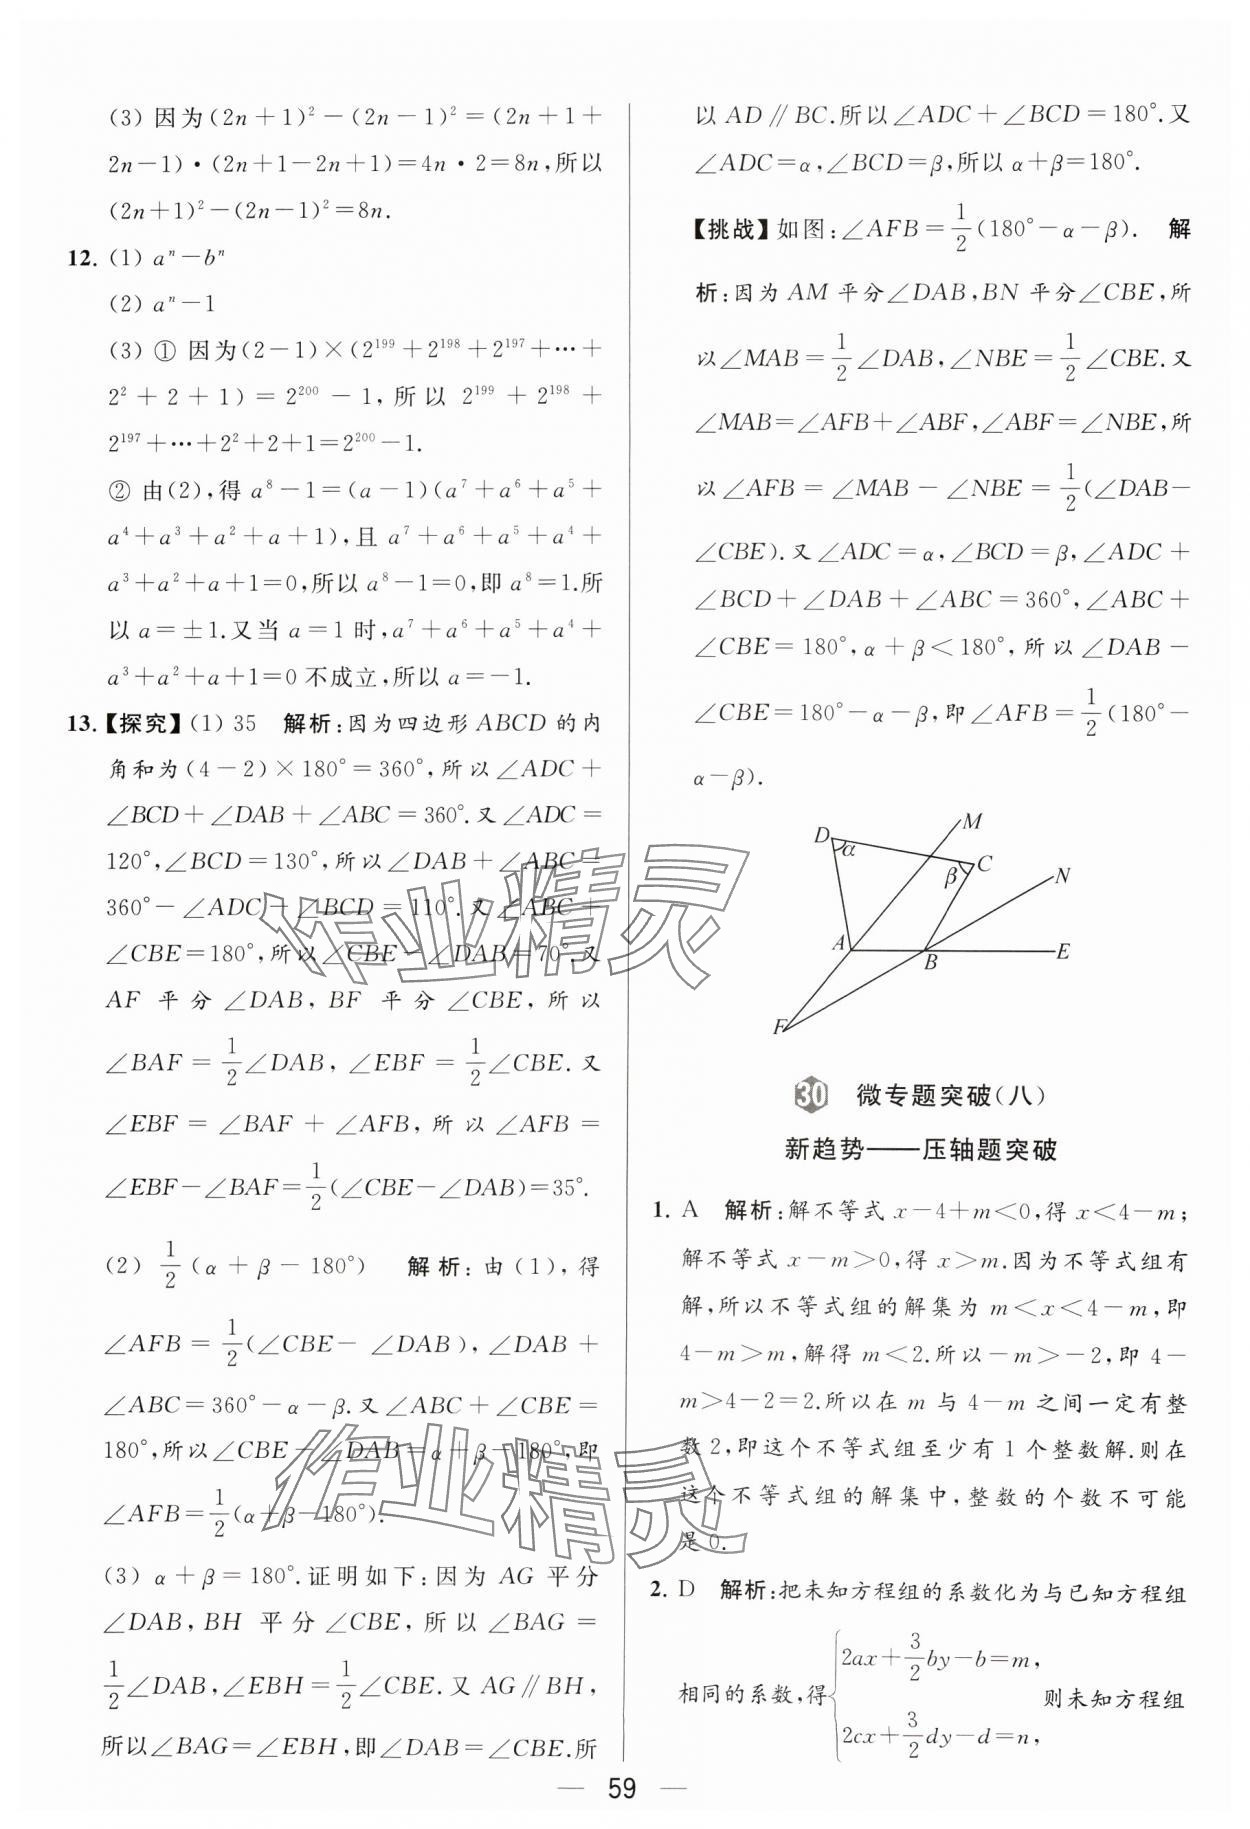 (3) 因为(2n+1)²-(2n-1)²=(2n+1+
2n-1)·(2n+1-2n+1)=4n·2=8n,所以
(2n+1)²-(2n-1)²=8n.
12. (1) aⁿ-bⁿ
(2) aⁿ-1
(3) ① 因为(2-1)×(2¹⁹⁹+2¹⁹⁸+2¹⁹⁷+…+
2²+2+1)=2²⁰⁰-1,所以 2¹⁹⁹+2¹⁹⁸+
2¹⁹⁷+…+2²+2+1=2²⁰⁰-1.
② 由(2),得 a⁸-1=(a-1)(a⁷+a⁶+a⁵+
a⁴+a³+a²+a+1),且 a⁷+a⁶+a⁵+a⁴+
a³+a²+a+1=0,所以 a⁸-1=0,即 a⁸=1.所
以 a=±1.又当 a=1 时,a⁷+a⁶+a⁵+a⁴+
a³+a²+a+1=0 不成立,所以 a=-1.
13.【探究】(1) 35 解析:因为四边形 ABCD 的内
角和为(4-2)×180°=360°,所以∠ADC+
∠BCD+∠DAB+∠ABC=360°.又∠ADC=
120°,∠BCD=130°,所以∠DAB+∠ABC=
360°-∠ADC-∠BCD=110°.又∠ABC+
∠CBE=180°,所以∠CBE-∠DAB=70°.又
AF 平分∠DAB,BF 平分∠CBE,所以
∠BAF=1/2∠DAB,∠EBF=1/2∠CBE.又
∠EBF=∠BAF+∠AFB,所以∠AFB=
∠EBF-∠BAF=1/2(∠CBE-∠DAB)=35°.
(2) 1/2(α+β-180°) 解析:由(1),得
∠AFB=1/2(∠CBE-∠DAB),∠DAB+
∠ABC=360°-α-β.又∠ABC+∠CBE=
180°,所以∠CBE-∠DAB=α+β-180°,即
∠AFB=1/2(α+β-180°).
(3) α+β=180°.证明如下:因为 AG 平分
∠DAB,BH 平分∠CBE,所以∠BAG=
1/2∠DAB,∠EBH=1/2∠CBE.又 AG∥BH,
所以∠BAG=∠EBH,即∠DAB=∠CBE.所
以 AD∥BC.所以∠ADC+∠BCD=180°.又
∠ADC=α,∠BCD=β,所以 α+β=180°.
【挑战】如图:∠AFB=1/2(180°-α-β). 解
析:因为 AM 平分∠DAB,BN 平分∠CBE,所
以∠MAB=1/2∠DAB,∠NBE=1/2∠CBE.又
∠MAB=∠AFB+∠ABF,∠ABF=∠NBE,所
以∠AFB=∠MAB-∠NBE=1/2(∠DAB-
∠CBE).又∠ADC=α,∠BCD=β,∠ADC+
∠BCD+∠DAB+∠ABC=360°,∠ABC+
∠CBE=180°,α+β<180°,所以∠DAB-
∠CBE=180°-α-β,即∠AFB=1/2(180°-
α-β).
M
D
α
C
β
N
A
B
E
F
30 微专题突破(八)
新趋势——压轴题突破
1. A 解析:解不等式 x-4+m<0,得 x<4-m;
解不等式 x-m>0,得 x>m.因为不等式组有
解,所以不等式组的解集为 m<x<4-m,即
4-m>m,解得 m<2.所以-m>-2,即 4-
m>4-2=2.所以在 m 与 4-m 之间一定有整
数 2,即这个不等式组至少有 1 个整数解.则在
这个不等式组的解集中,整数的个数不可能
是 0.
2. D 解析:把未知方程组的系数化为与已知方程组
相同的系数,得{2ax+3/2by-b=m, 2cx+3/2dy-d=n, 则未知方程组
59
作业精灵
作业精灵